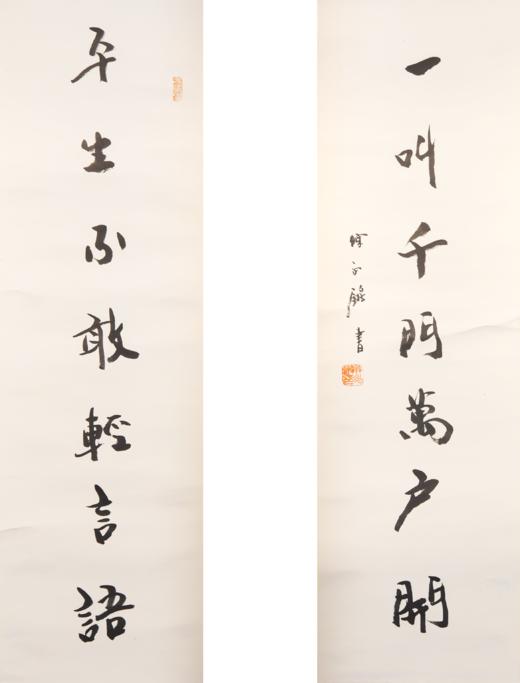 平生不敢輕言語
一叫千門萬户開
書